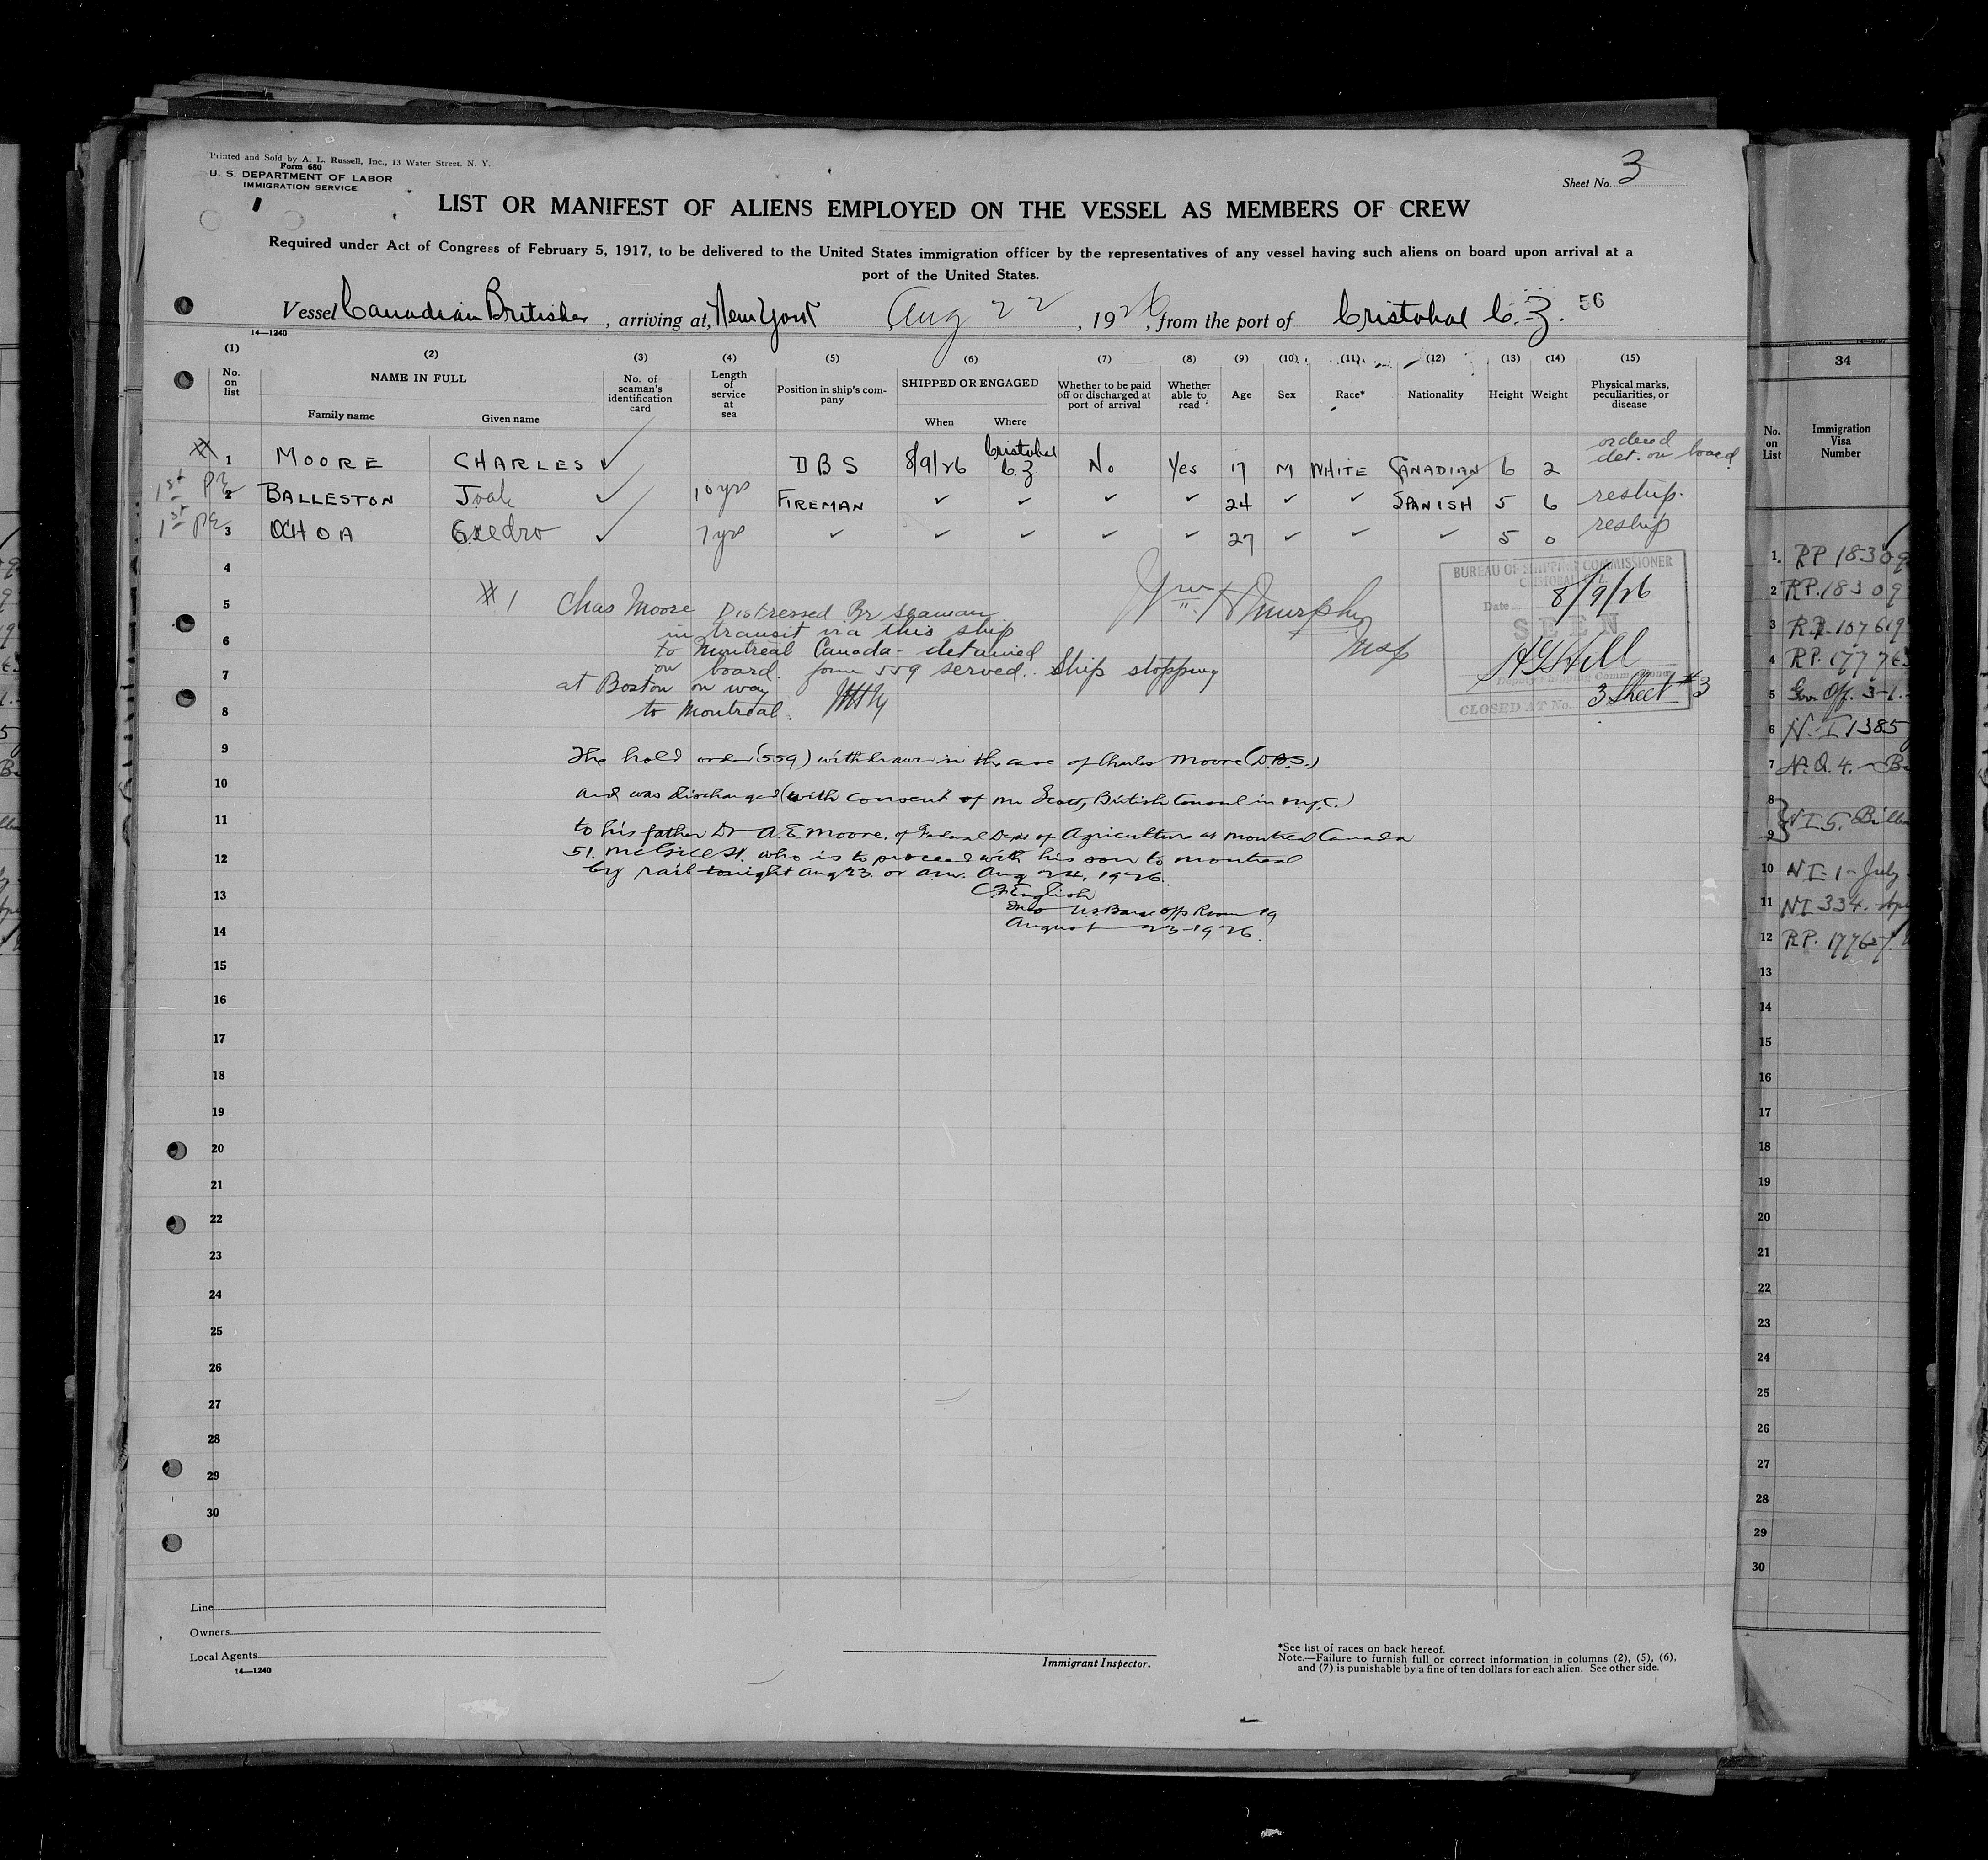 Printed and Sold by A. L. Russell, Inc., 13 Water Street, N. Y.
Form 680
U. S. DEPARTMENT OF LABOR
IMMIGRATION SERVICE
Sheet No. 3
LIST OR MANIFEST OF ALIENS EMPLOYED ON THE VESSEL AS MEMBERS OF CREW
Required under Act of Congress of February 5, 1917, to be delivered to the United States immigration officer by the representatives of any vessel having such aliens on board upon arrival at a
port of the United States.
Vessel Canadian Britisher, arriving at, New York Aug 22, 1926, from the port of Cristobal C.Z. 56
14—1240
(1) (2) (3) (4) (5) (6) (7) (8) (9) (10) (11) (12) (13) (14) (15)
No. on list NAME IN FULL Family name Given name No. of seaman's identification card Length of service at sea Position in ship's company SHIPPED OR ENGAGED When Where Whether to be paid off or discharged at port of arrival Whether able to read Age Sex Race* Nationality Height Weight Physical marks, peculiarities, or disease
1 MOORE CHARLES ✓ D B S 8/9/26 Cristobal C.Z. No Yes 17 M WHITE CANADIAN 6 2 ordered det. on board
1st 2 BALLESTON ✓ 10 yrs FIREMAN ✓ ✓ ✓ ✓ 24 ✓ ✓ SPANISH 5 6 reship.
1st 3 OCHOA ✓ 7 yrs ✓ ✓ ✓ ✓ ✓ 27 ✓ ✓ ✓ 5 0 reship
4
5
6
7
8
9
10
11
12
13
14
15
16
17
18
19
20
21
22
23
24
25
26
27
28
29
30
#1 Chas Moore Distressed Br seaman
in transit via this ship
to Montreal Canada - detained
on board. form 559 served. Ship stopping
at Boston on way
to Montreal.
Wm H Murphy
Insp
BUREAU OF SHIPPING COMMISSIONER
CRISTOBAL, C. Z.
Date 8/9/26
SEEN
Deputy Shipping Commissioner
CLOSED AT No. 3 Sheet #3
The hold order (559) withdrawn in the case of Charles Moore (D.B.S.)
and was discharged (with consent of Mr Scott, British Consul in N.Y.C.)
to his father Dr A.E. Moore, of Federal Dept of Agriculture at Montreal Canada
51. McGill St. who is to proceed with his son to Montreal
by rail tonight Aug 23. or a.m. Aug 24, 1926.
C.F. English
Room 19
August 23-1926.
Line
Owners
Local Agents
14—1240
Immigrant Inspector.
*See list of races on back hereof.
Note.—Failure to furnish full or correct information in columns (2), (5), (6),
and (7) is punishable by a fine of ten dollars for each alien. See other side.
34
No. on List Immigration Visa Number
1.
2
3
4
5
6 N.I. 1385
7
8
9
10 NI-1-July
11 NI 334.
12
13
14
15
16
17
18
19
20
21
22
23
24
25
26
27
28
29
30